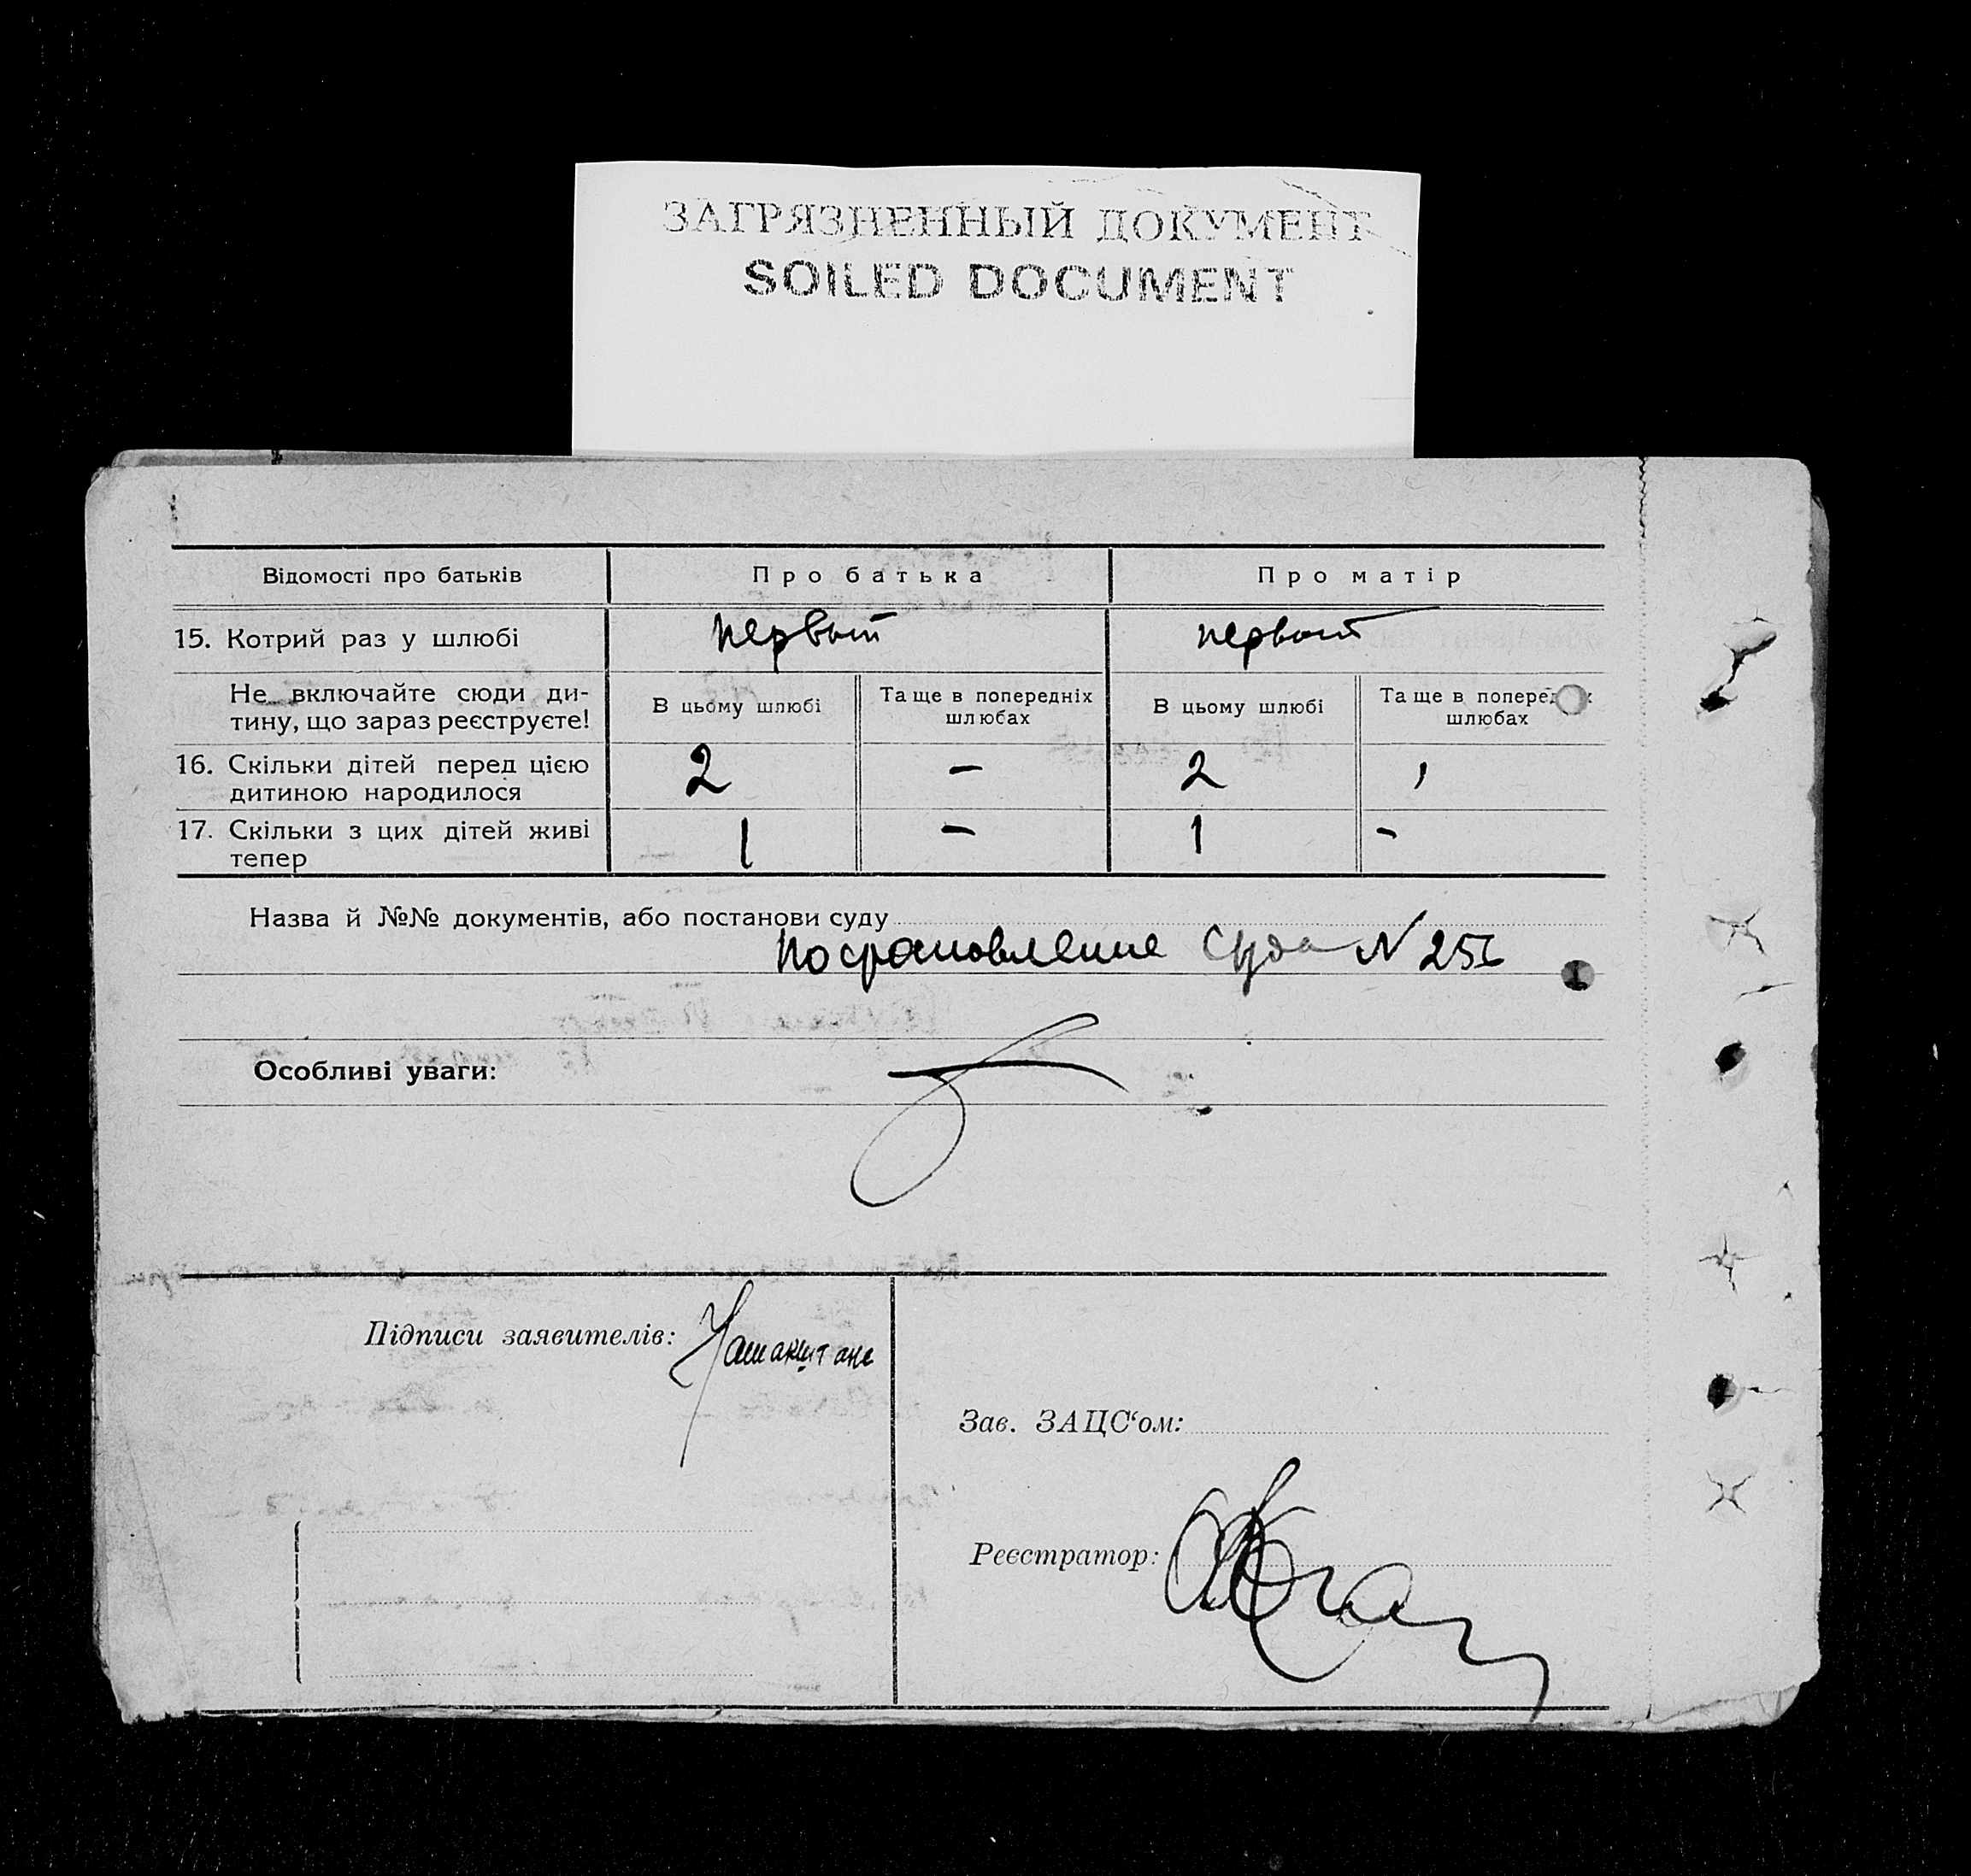 ЗАГРЯЗНЕННЫЙ ДОКУМЕНТ
SOILED DOCUMENT
Відомості про батьків
Про батька
Про матір
15. Котрий раз у шлюбі
первый
первый
Не включайте сюди ди-
тину, що зараз реєструєте!
В цьому шлюбі
Та ще в попередніх
шлюбах
В цьому шлюбі
Та ще в
шлюбах
16. Скільки дітей перед цією
дитиною народилося
2
–
2
17. Скільки з цих дітей живі
тепер
1
–
1
–
Назва й №№ документів, або постанови суду
Постановление Суда N
Особливі уваги:
Підписи заявителів:
Зав. ЗАЦС‘ом:
Реєстратор: